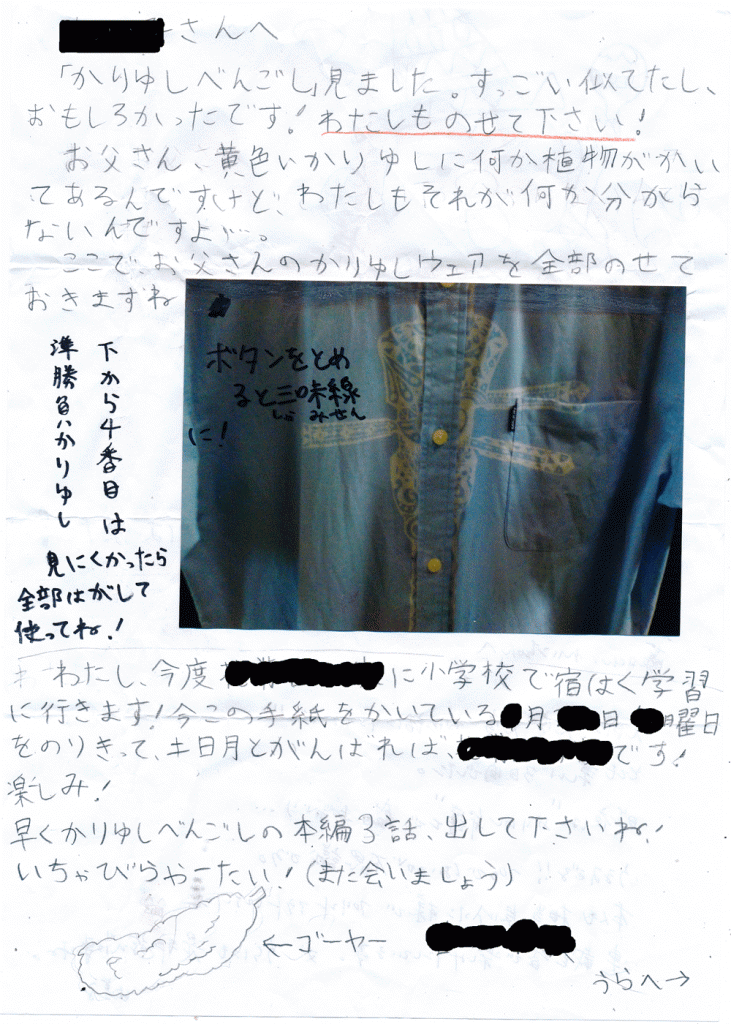 さんへ
「かりゆしべんごし」見ました。すっごい似てたし、
おもしろかったです！わたしものせて下さい！
お父さん、黄色いかりゆしに何か植物がかい
てあるんですけど、わたしもそれが何か分から
ないんですよ…。
ここで、お父さんのかりゆしウェアを全部のせて
おきますね
ボタンをとめ
ると三味線
しゃみせん
に！
下から4番目は
準勝負かりゆし
見にくかったら
全部はがして
使ってね！
わたし、今度
に小学校で宿はく学習
に行きます！今この手紙をかいている
月
日
曜日
をのりきって、土日月とがんばれば、
です！
楽しみ！
早くかりゆしべんごしの本編3話、出して下さいね！
いちゃびらやーたい！（また会いましょう）
←ゴーヤー
うらへ→